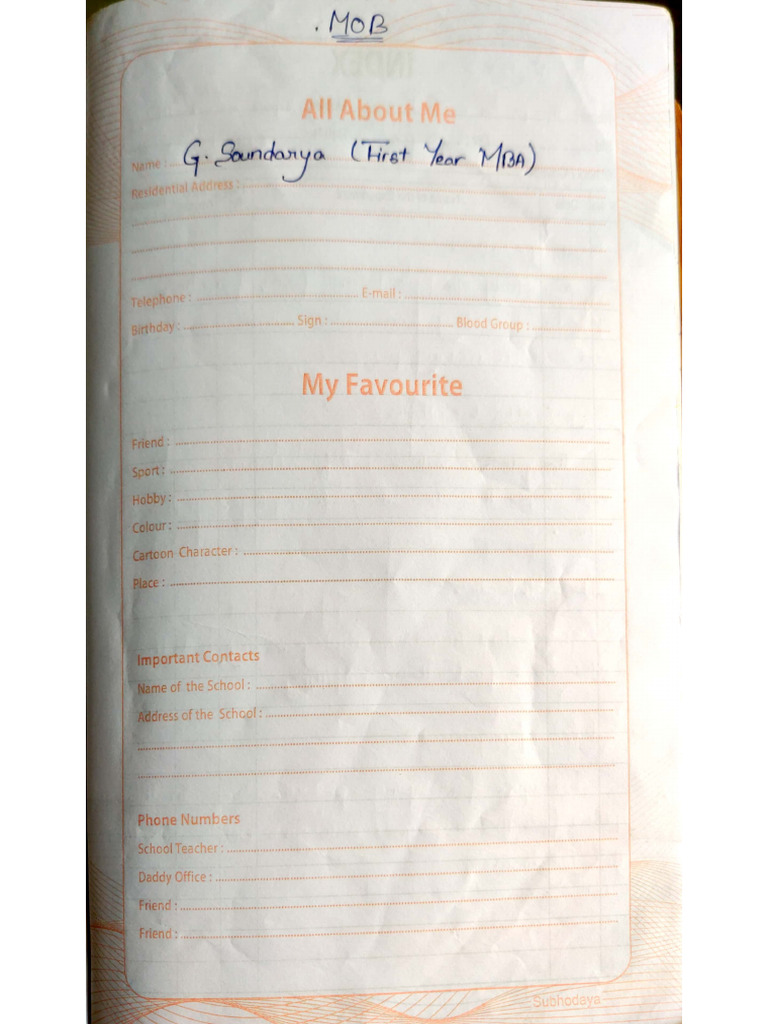 . MOB
All About Me
Name : G. Soundarya (First Year MBA)
Residential Address :
Telephone : E-mail :
Birthday : Sign : Blood Group :
My Favourite
Friend :
Sport :
Hobby :
Colour :
Cartoon Character :
Place :
Important Contacts
Name of the School :
Address of the School :
Phone Numbers
School Teacher :
Daddy Office :
Friend :
Friend :
Subhodaya